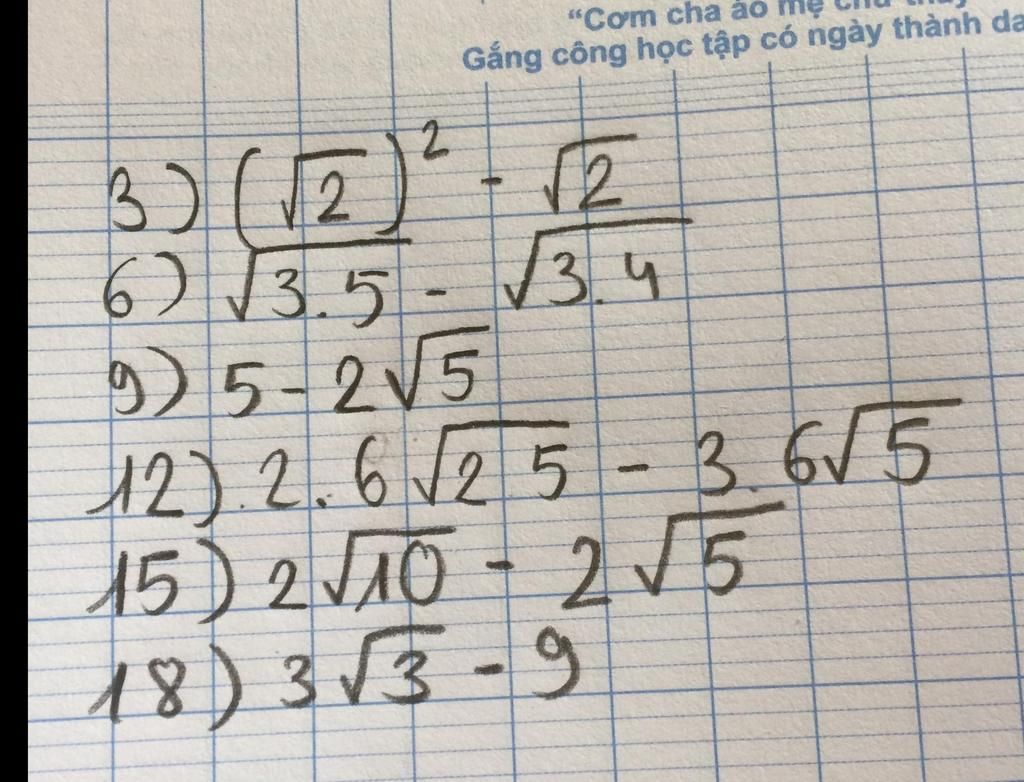 “Cơm cha áo mẹ
Gắng công học tập có ngày thành
3) (√2)² - √2
6) √3.5 - √3.4
9) 5 - 2√5
12). 2. 6√2 5 - 3. 6√5
15) 2√10 - 2√5
18) 3√3 - 9